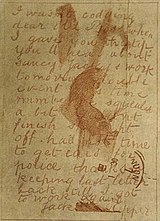 I was not codding
dear old Boss when
I gave you the tip
you'll hear about
saucy Jacky s work
tomorrow double
event this time
number one squeals
a bit couldnt
finish straight
off. had not time
to get ears for
police thanks for
keeping last letter
back till I got
to work again.
Jack the Ripper